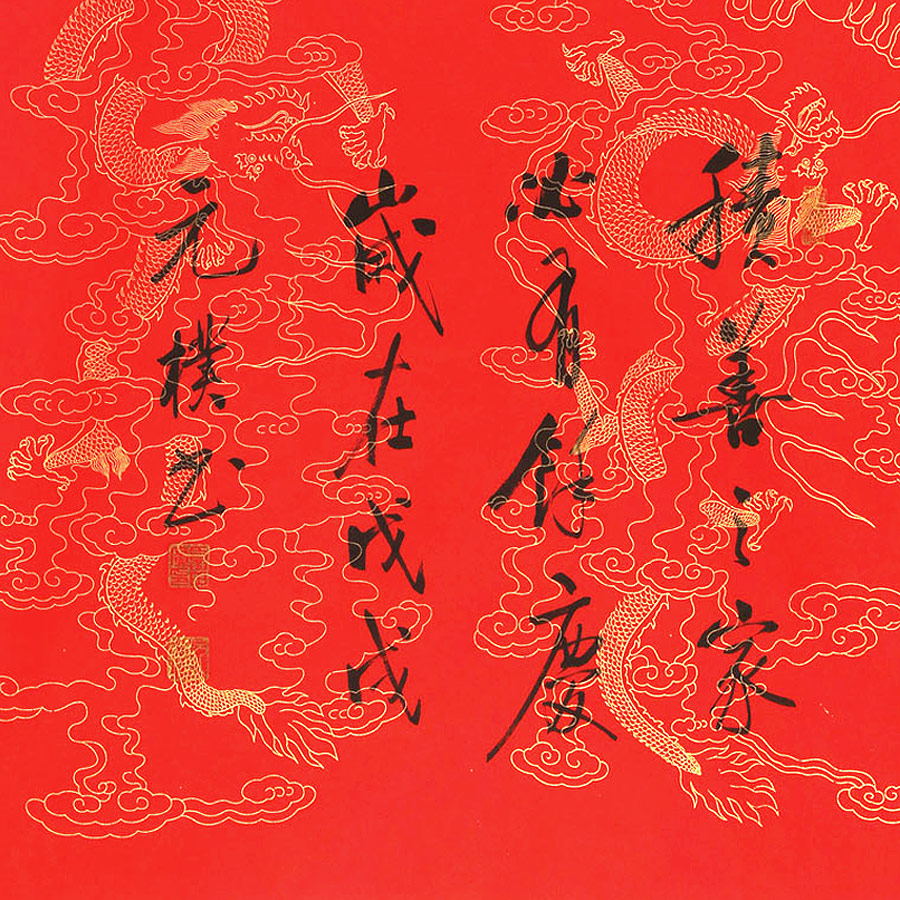 積善之家
必有餘慶
歲在戊戌
元樸书